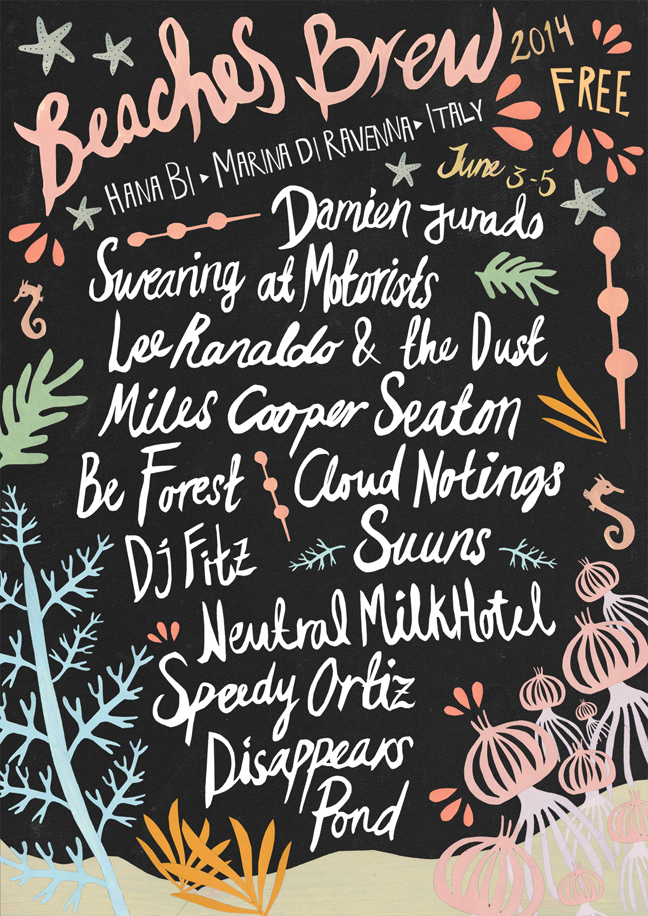 Beaches Brew 2014
FREE
HANA BI ▸ MARINA DI RAVENNA ▸ ITALY
June 3-5
Damien Jurado
Swearing at Motorists
Lee Ranaldo & the Dust
Miles Cooper Seaton
Be Forest Cloud Notings
Dj Fitz Suuns
Neutral Milk Hotel
Speedy Ortiz
Disappears
Pond